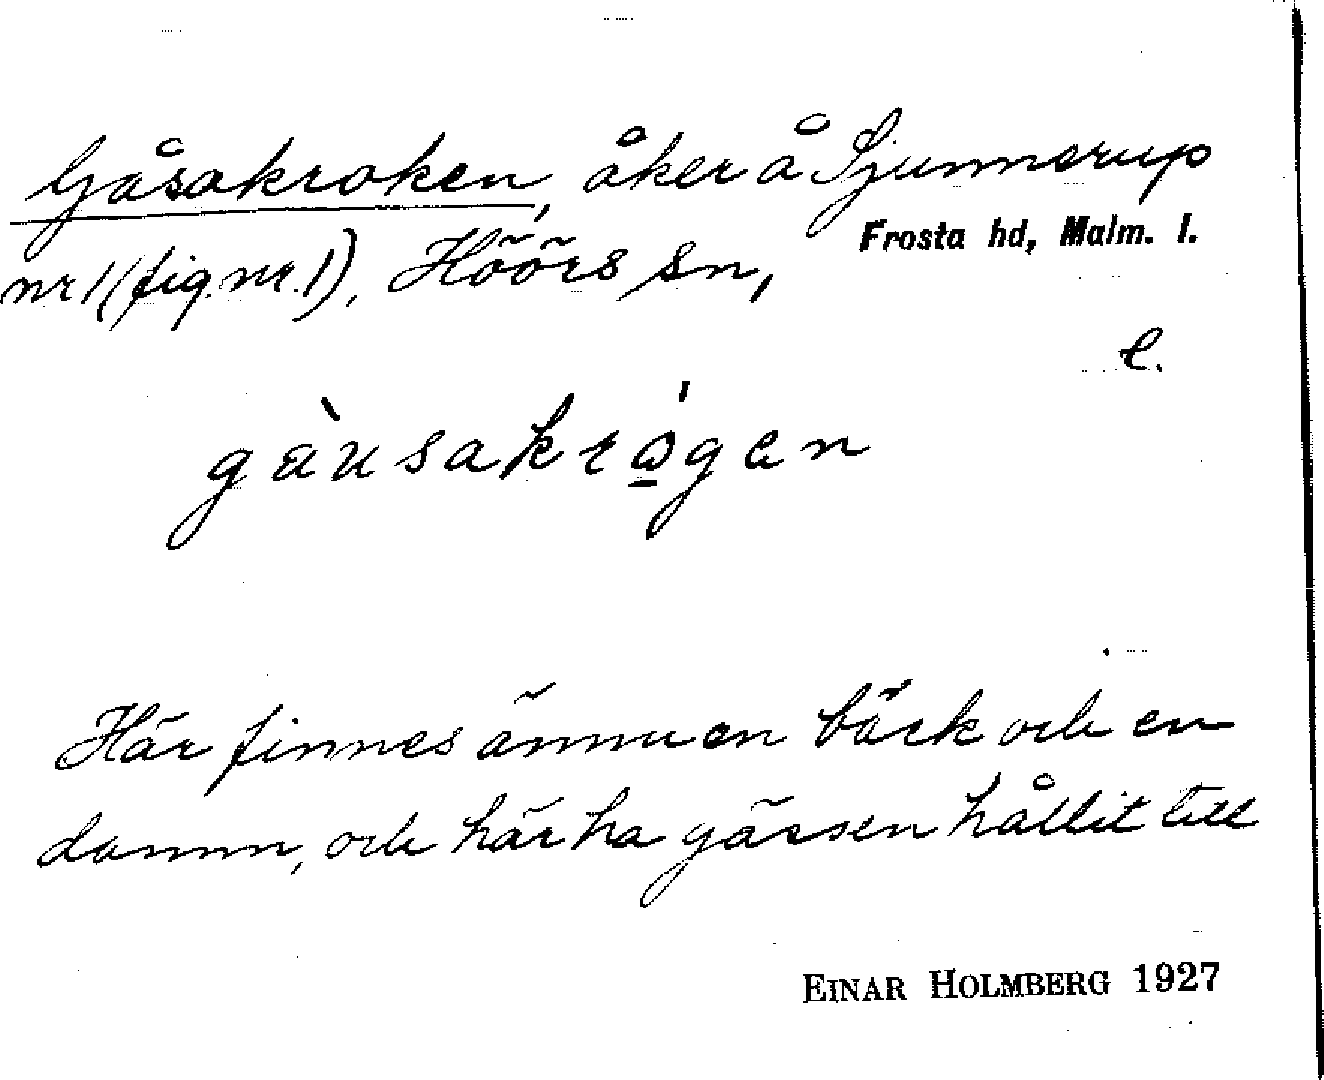 Gåsakroken, åker å Sjunnerup
nr 1 (fig. nr. 1), Höörs sn,
Frosta hd, Malm. l.
e.
gàusakrọ́gen
Här finnes ännu en bäck och en
damm, och här ha gässen hållit till
EINAR HOLMBERG 1927